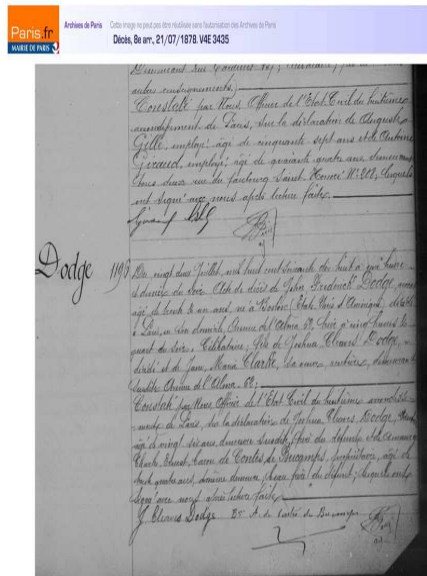 Paris.fr
MAIRIE DE PARIS
Archives de Paris
Cette image ne peut pas être réutilisée sans l'autorisation des Archives de Paris
Décès, 8e arr., 21/07/1878. V4E 3435
autres renseignements;
Constaté par Nous Officier de l'Etat Civil du huitième
arrondissement de Paris, sur la déclaration de August
Gille, employé, âgé de cinquante sept ans et de Antoine
Giraud, employé, âgé de quarante quatre ans demeurant
tous deux rue du faubourg Saint Honoré N° 208, lesquels
ont signé avec nous après lecture faite.
Dodge
Du vingt deux Juillet, mil huit cent soixante dix huit à
du soir. Acte de décès de John Frederick Dodge,
âgé de trente et un ans, né à Boston (Etats Unis d'Amérique) décédé
à Paris, en son domicile, Avenue de l'Alma 62, hier à neuf heures
du soir. Célibataire; fils de Joshua Cleaves Dodge,
décédé et de Jane Maria Clarke, sa veuve, rentière, demeurant
susdite Avenue de l'Alma, 62;
Constaté par Nous Officier de l'Etat Civil du huitième arrondisse-
ment de Paris, sur la déclaration de Joshua Cleaves Dodge,
âgé de vingt six ans, demeurant susdit, frère du défunt et de Amand
Charles Ernest, Baron de Contes de Bucamps, propriétaire, âgé de
trente quatre ans, même demeure, beau frère du défunt; lesquels ont
signé avec nous après lecture faite.
J. Cleaves Dodge